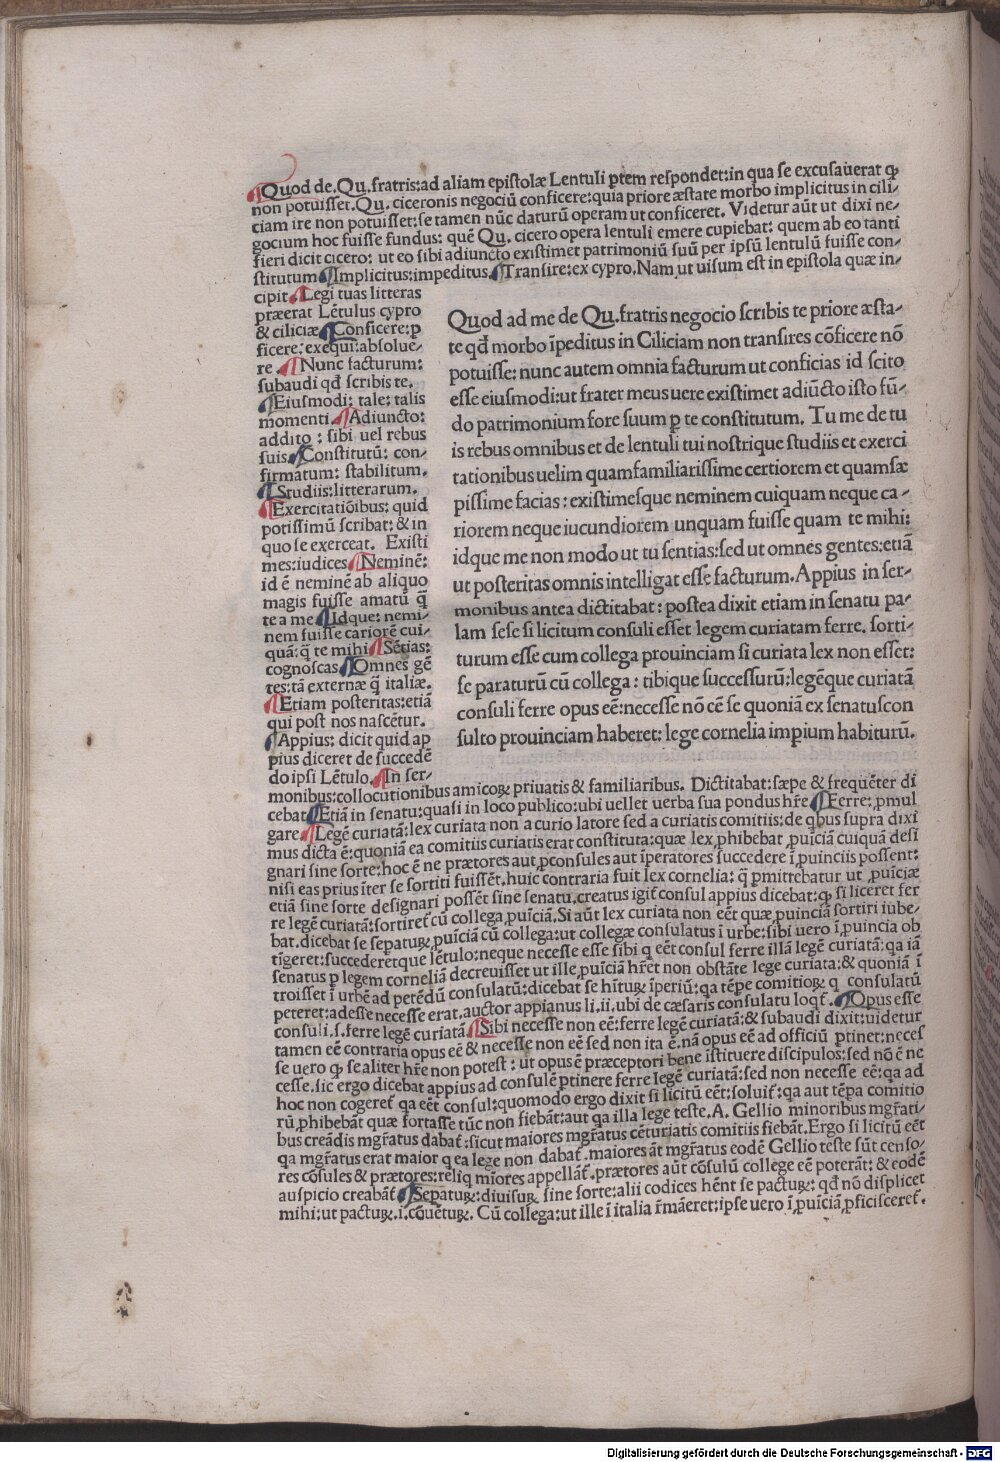 Quod de. Qu. fratris: ad aliam epistolæ Lentuli ꝑtem respondet: in qua se excusauerat ꝙ
non potuisset. Qu. ciceronis negociũ conficere: quia priore æstate morbo implicitus in cili-
ciam ire non potuisset: se tamen nũc daturũ operam ut conficeret. Videtur aũt ut dixi ne-
gocium hoc fuisse fundus: quẽ Qu. cicero opera lentuli emere cupiebat: quem ab eo tanti
fieri dicit cicero: ut eo sibi adiuncto existimet patrimoniũ suũ per ipsũ lentulũ fuisse con-
stitutum ¶ Implicitus: impeditus. ¶ Transire: ex cypro. Nam ut uisum est in epistola quæ in-
cipit ¶ Legi tuas litteras
præerat Lẽtulus cypro
& ciliciæ ¶ Conficere: ꝑ
ficere: exequi: absolue-
re ¶ Nunc facturum:
subaudi qd̃ scribis te.
¶ Eiusmodi: tale: talis
momenti ¶ Adiuncto:
addito : sibi uel rebus
suis ¶ Constitutũ: con-
firmatum: stabilitum.
¶ Studiis: litterarum.
¶ Exercitatiõibus: quid
potissimũ scribat: & in
quo se exerceat. Existi
mes: iudices ¶ Neminẽ:
id ẽ neminẽ ab aliquo
magis fuisse amatũ q̃
te a me ¶ Idque: nemi-
nem fuisse cariorẽ cui-
quã: q̃ te mihi ¶ Sẽtias:
cognoscas ¶ Omnes gẽ
tes: tã externæ q̃ italiæ.
¶ Etiam posteritas: etiã
qui post nos nascẽtur.
¶ Appius: dicit quid ap
pius diceret de succedẽ
do ipsi Lẽtulo. ¶ In ser-
Quod ad me de Qu. fratris negocio scribis te priore æsta-
te qd̃ morbo ĩpeditus in Ciliciam non transires cõficere nõ
potuisse: nunc autem omnia facturum ut conficias id scito
esse eiusmodi: ut frater meus uere existimet adiũcto isto fũ-
do patrimonium fore suum ꝑ te constitutum. Tu me de tu
is rebus omnibus et de lentuli tui nostrique studiis et exerci
tationibus uelim quamfamiliarissime certiorem et quamsæ
pissime facias: existimesque neminem cuiquam neque ca-
riorem neque iucundiorem unquam fuisse quam te mihi:
idque me non modo ut tu sentias: sed ut omnes gentes: etiã
ut posteritas omnis intelligat esse facturum. Appius in ser-
monibus antea dictitabat: postea dixit etiam in senatu pa-
lam sese si licitum consuli esset legem curiatam ferre. sorti-
turum esse cum collega prouinciam si curiata lex non esset:
se paraturũ cũ collega: tibique successurũ: legẽque curiatã
consuli ferre opus eẽ: necesse nõ cẽ se quoniã ex senatuscon
sulto prouinciam haberet: lege cornelia imꝑium habiturũ.
monibus: collocutionibus amicoꝝ priuatis & familiaribus. Dictitabat: sæpe & frequẽter di
cebat ¶ Etiã in senatu: quasi in loco publico: ubi uellet uerba sua pondus hr̃e ¶ Ferre: ꝓmul
gare ¶ Legẽ curiatã: lex curiata non a curio latore sed a curiatis comitiis: de qbus supra dixi
mus dicta ẽ: quoniã ea comitiis curiatis erat constituta: quæ lex ꝓhibebat ꝓuiciã cuiquã desi
gnari sine sorte: hoc ẽ ne prætores aut ꝓconsules aut ĩperatores succedere ĩ ꝓuinciis possent:
nisi eas prius ĩter se sortiti fuissẽt. huic contraria fuit lex cornelia: q̃ ꝑmittebatur ut ꝓuĩciæ
etiã sine sorte designari possẽt sine senatu. creatus igit̃ consul appius dicebat: ꝙ si liceret fer
re legẽ curiatã: sortiret̃ cũ collega ꝓuĩciã. Si aũt lex curiata non eẽt quæ ꝓuinciã sortiri iube-
bat. dicebat se sepatuꝝ ꝓuĩciã cũ collega: ut collegæ consulatus ĩ urbe: sibi uero ĩ ꝓuincia ob
tĩgeret: succederetque lẽtulo: neque necesse esse sibi q eẽt consul ferre illã legẽ curiatã: qa iã
senatus ꝑ legem corneliã decreuisset ut ille ꝓuĩciã hr̃et non obstãte lege curiata: & quoniã ĩ
troisset ĩ urbẽ ad petẽdũ consulatũ: dicebat se hĩtuꝝ ĩperiũ: qa tẽpe comitioꝝ q consulatũ
peteret: adesse necesse erat. auctor appianus li. ii. ubi de cæsaris consulatu loqt̃. ¶ Opus esse
consuli. s. ferre legẽ curiatã ¶ Sibi necesse non eẽ: ferre legẽ curiatã: & subaudi dixit: uidetur
tamen eẽ contraria opus eẽ & necesse non eẽ sed non ita ẽ. nã opus eẽ ad officiũ ꝑtinet: neces
se uero ꝙ se aliter hr̃e non potest: ut opus ẽ præceptori bene istituere discipulos: sed nõ ẽ ne
cesse. sic ergo dicebat appius ad consulẽ ꝑtinere ferre legẽ curiatã: sed non necesse eẽ: qa ad
hoc non cogeret̃ qa eẽt consul: quomodo ergo dixit si licitũ eẽt: soluit̃: qa aut tẽpa comitio
rũ ꝓhibebãt quæ fortasse tũc non fiebãt: aut qa illa lege teste. A. Gellio minoribus mgr̃ati-
bus creãdis mgr̃atus dabat̃: sicut maiores mgr̃atus cẽturiatis comitiis fiebãt. Ergo si licitũ eẽt
qa mgr̃atus erat maior q ea lege non dabat̃. maiores ãt mgr̃atus eodẽ Gellio teste sũt censo-
res cõsules & prætores: reliq mĩores appellãt̃. prætores aũt cõsulũ college eẽ poterãt: & eodẽ
auspicio creabãt̃ ¶ Sepatuꝝ: diuisuꝝ sine sorte: alii codices hẽnt se pactuꝝ: qd̃ nõ displicet
mihi: ut pactuꝝ. i. cõuẽtuꝝ. Cũ collega: ut ille ĩ italia r̃mãeret: ipse uero ĩ ꝓuĩciã ꝓficisceret̃.
Digitalisierung gefördert durch die Deutsche Forschungsgemeinschaft - DFG